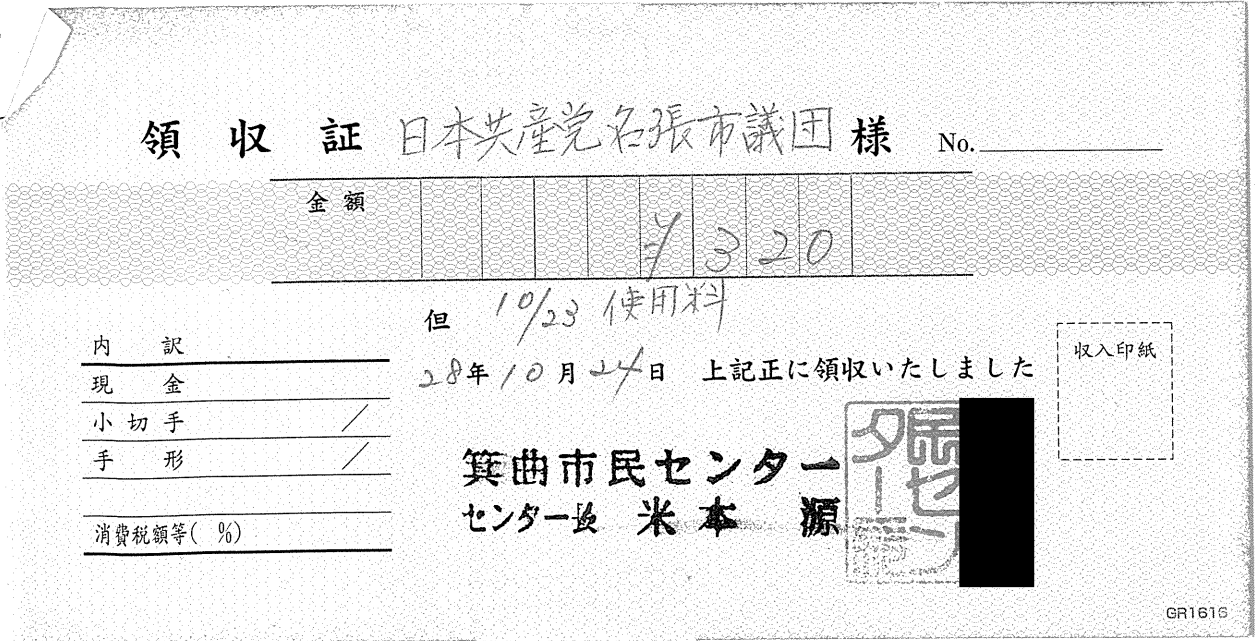 領収証 日本共産党名張市議団 様 No.
金額 ¥320
但 10/23 使用料
28年10月24日 上記正に領収いたしました
収入印紙
内訳
現金
小切手 /
手形 /
消費税額等( %)
箕曲市民センター
センター長 米本 源
GR1616